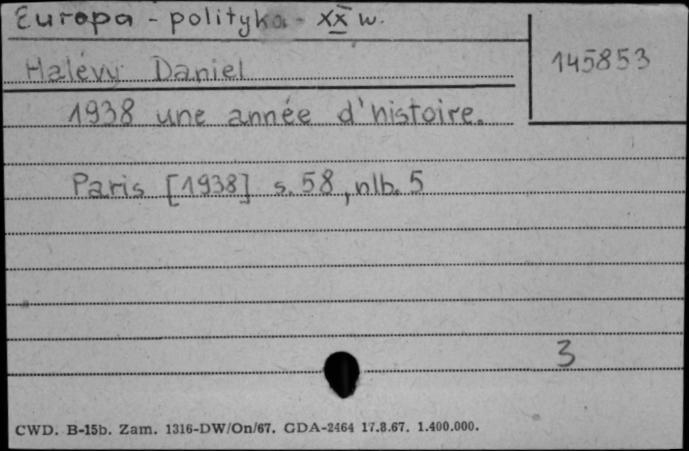 Europa - polityka - XX w.
Halévy Daniel
145853
1938 une année d'histoire.
Paris [1938] s. 58, nlb. 5
3
CWD. B-15b. Zam. 1316-DW/On/67. GDA-2464 17.8.67. 1.400.000.